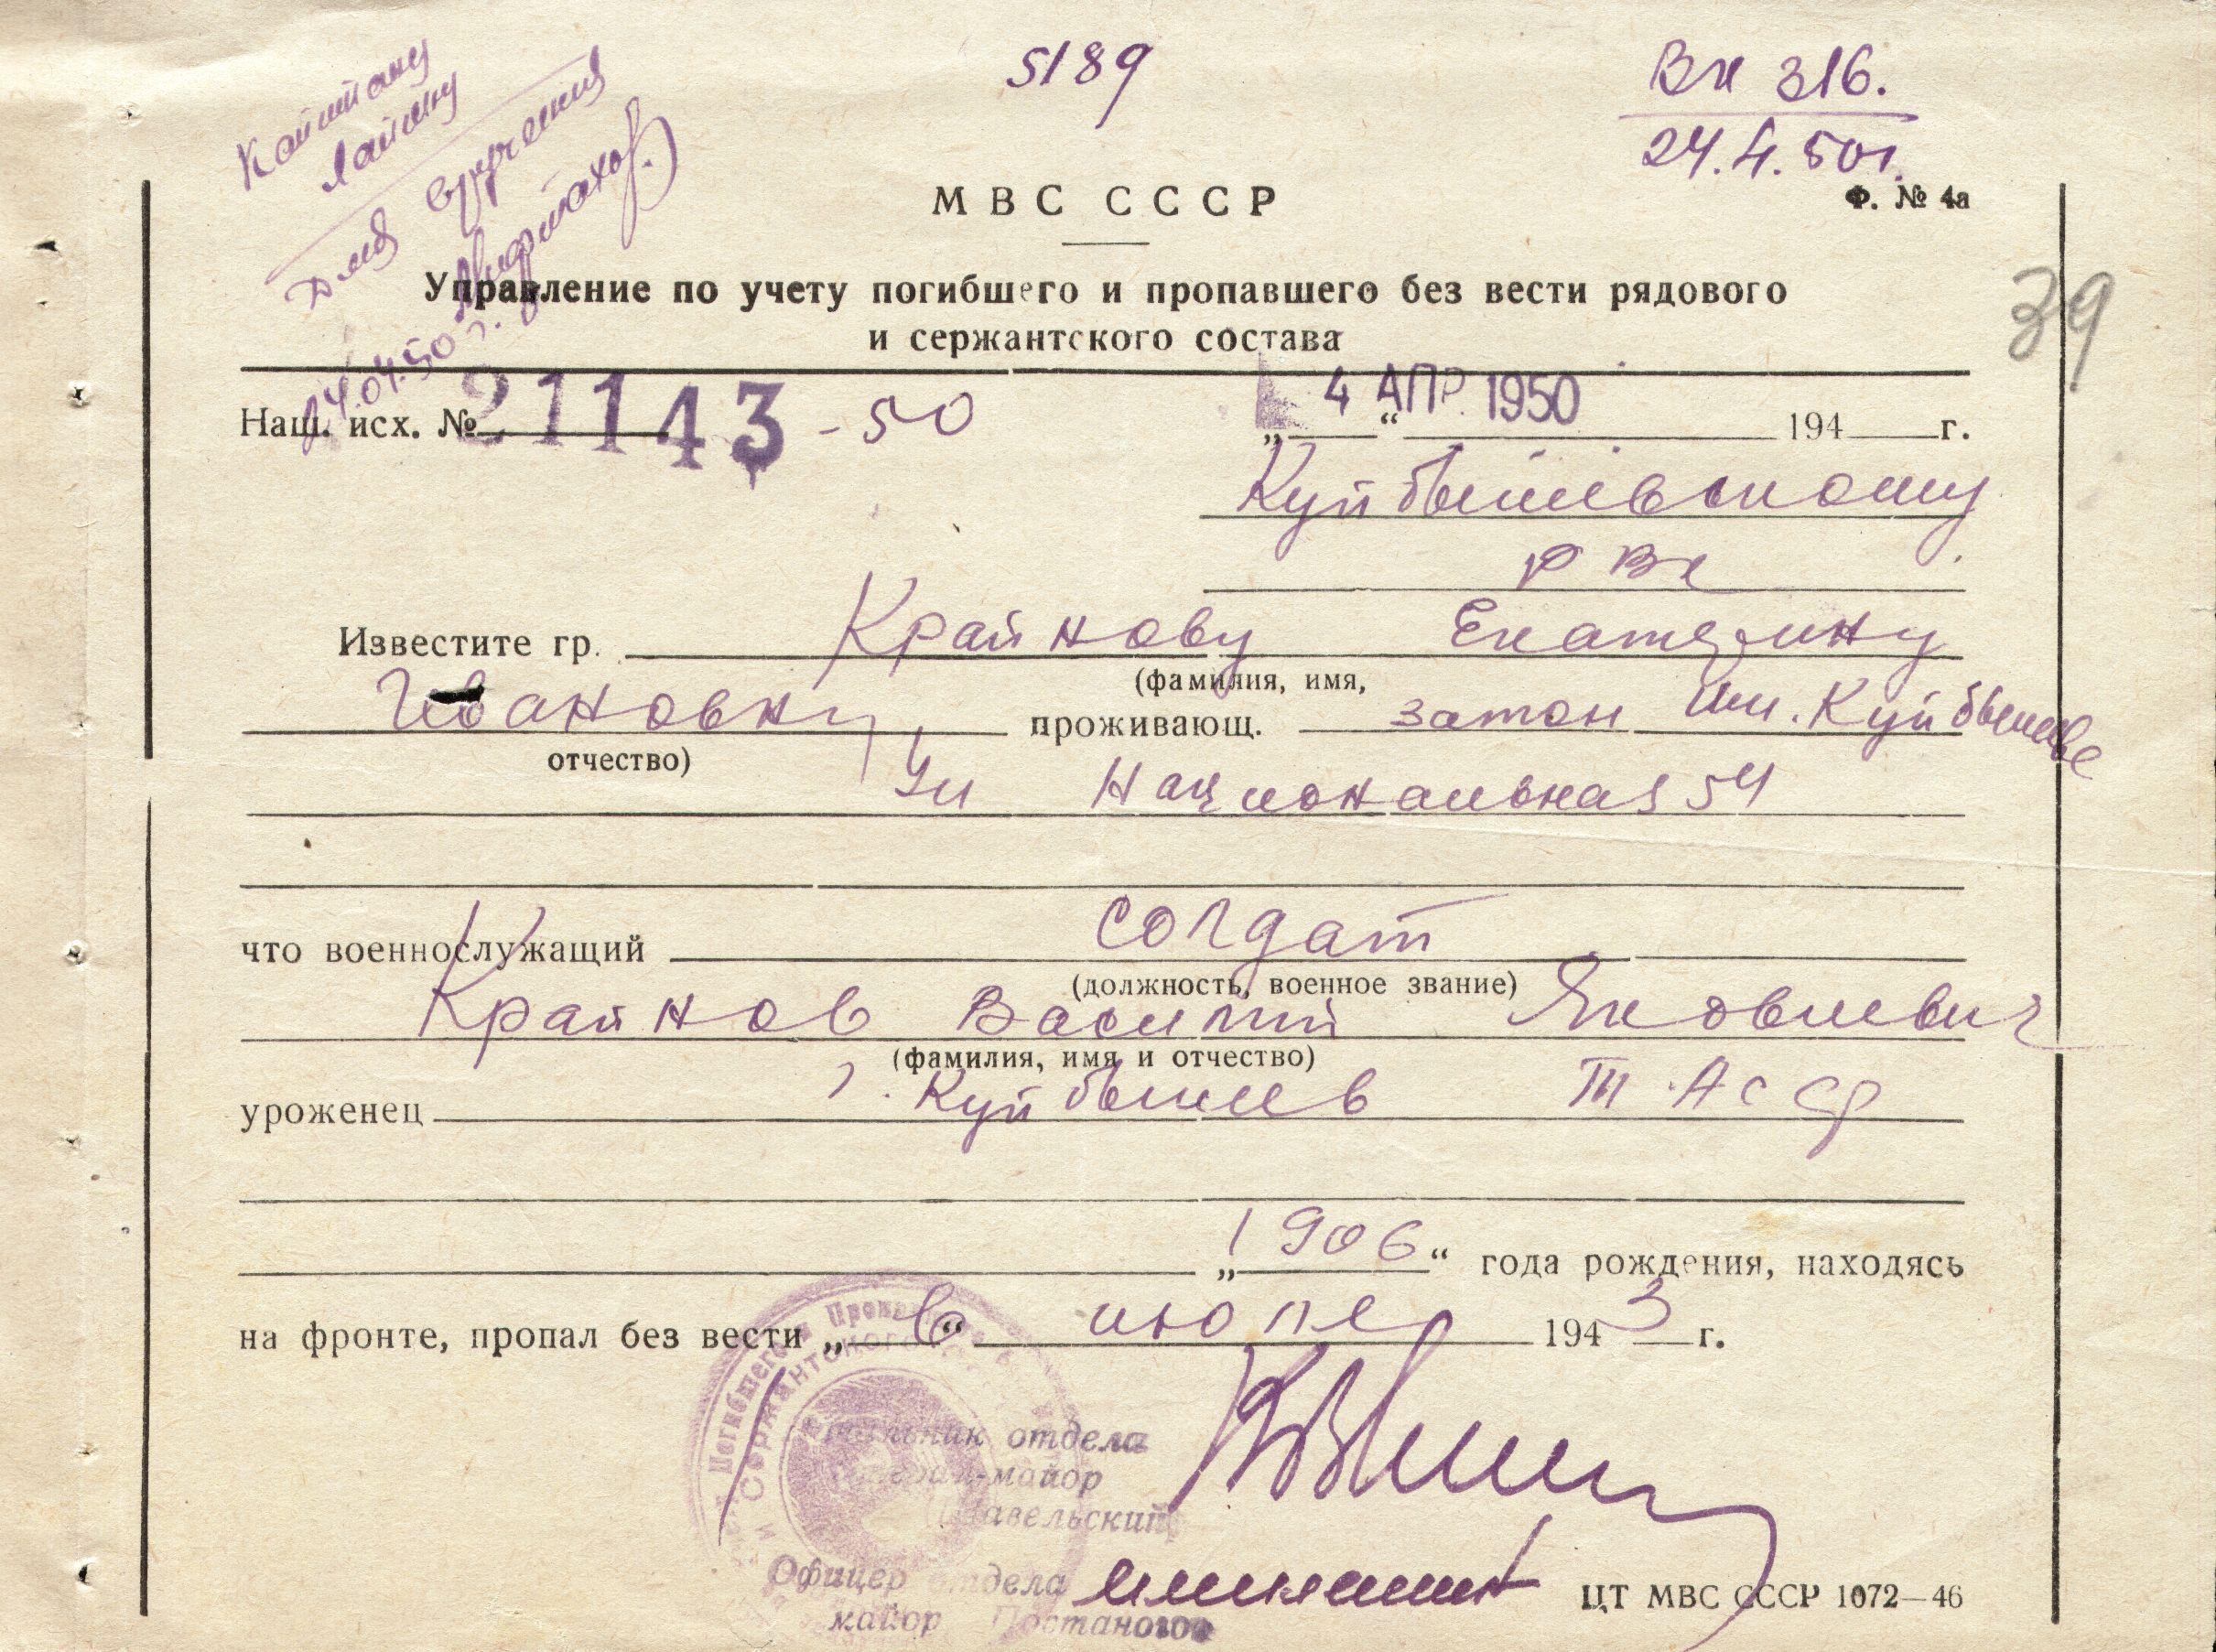 Капитану
Лапину
для вручения
24.04.50 г.
5189
Вх 316.
24.4.50г.
МВС СССР
Ф. № 4а
39
Управление по учету погибшего и пропавшего без вести рядового
и сержантского состава
Наш. исх. № 21143 - 50
„4“ АПР. 1950 194 г.
Куйбышевскому
РВК
Известите гр. Крайнову Екатерину
(фамилия, имя,
Ивановну проживающ. затон им. Куйбышева
отчество)
Ул Национальная 54
что военнослужащий солдат
(должность, военное звание)
Крайнов Василий Яковлевич
(фамилия, имя и отчество)
уроженец г. Куйбышев ТАССР
„1906“ года рождения, находясь
на фронте, пропал без вести „ “ в июле 1943 г.
Погибшего и Пропавшего
и Сержантского
Начальник отдела
генерал-майор
Шавельский
Офицер отдела
майор
ЦТ МВС СССР 1072—46